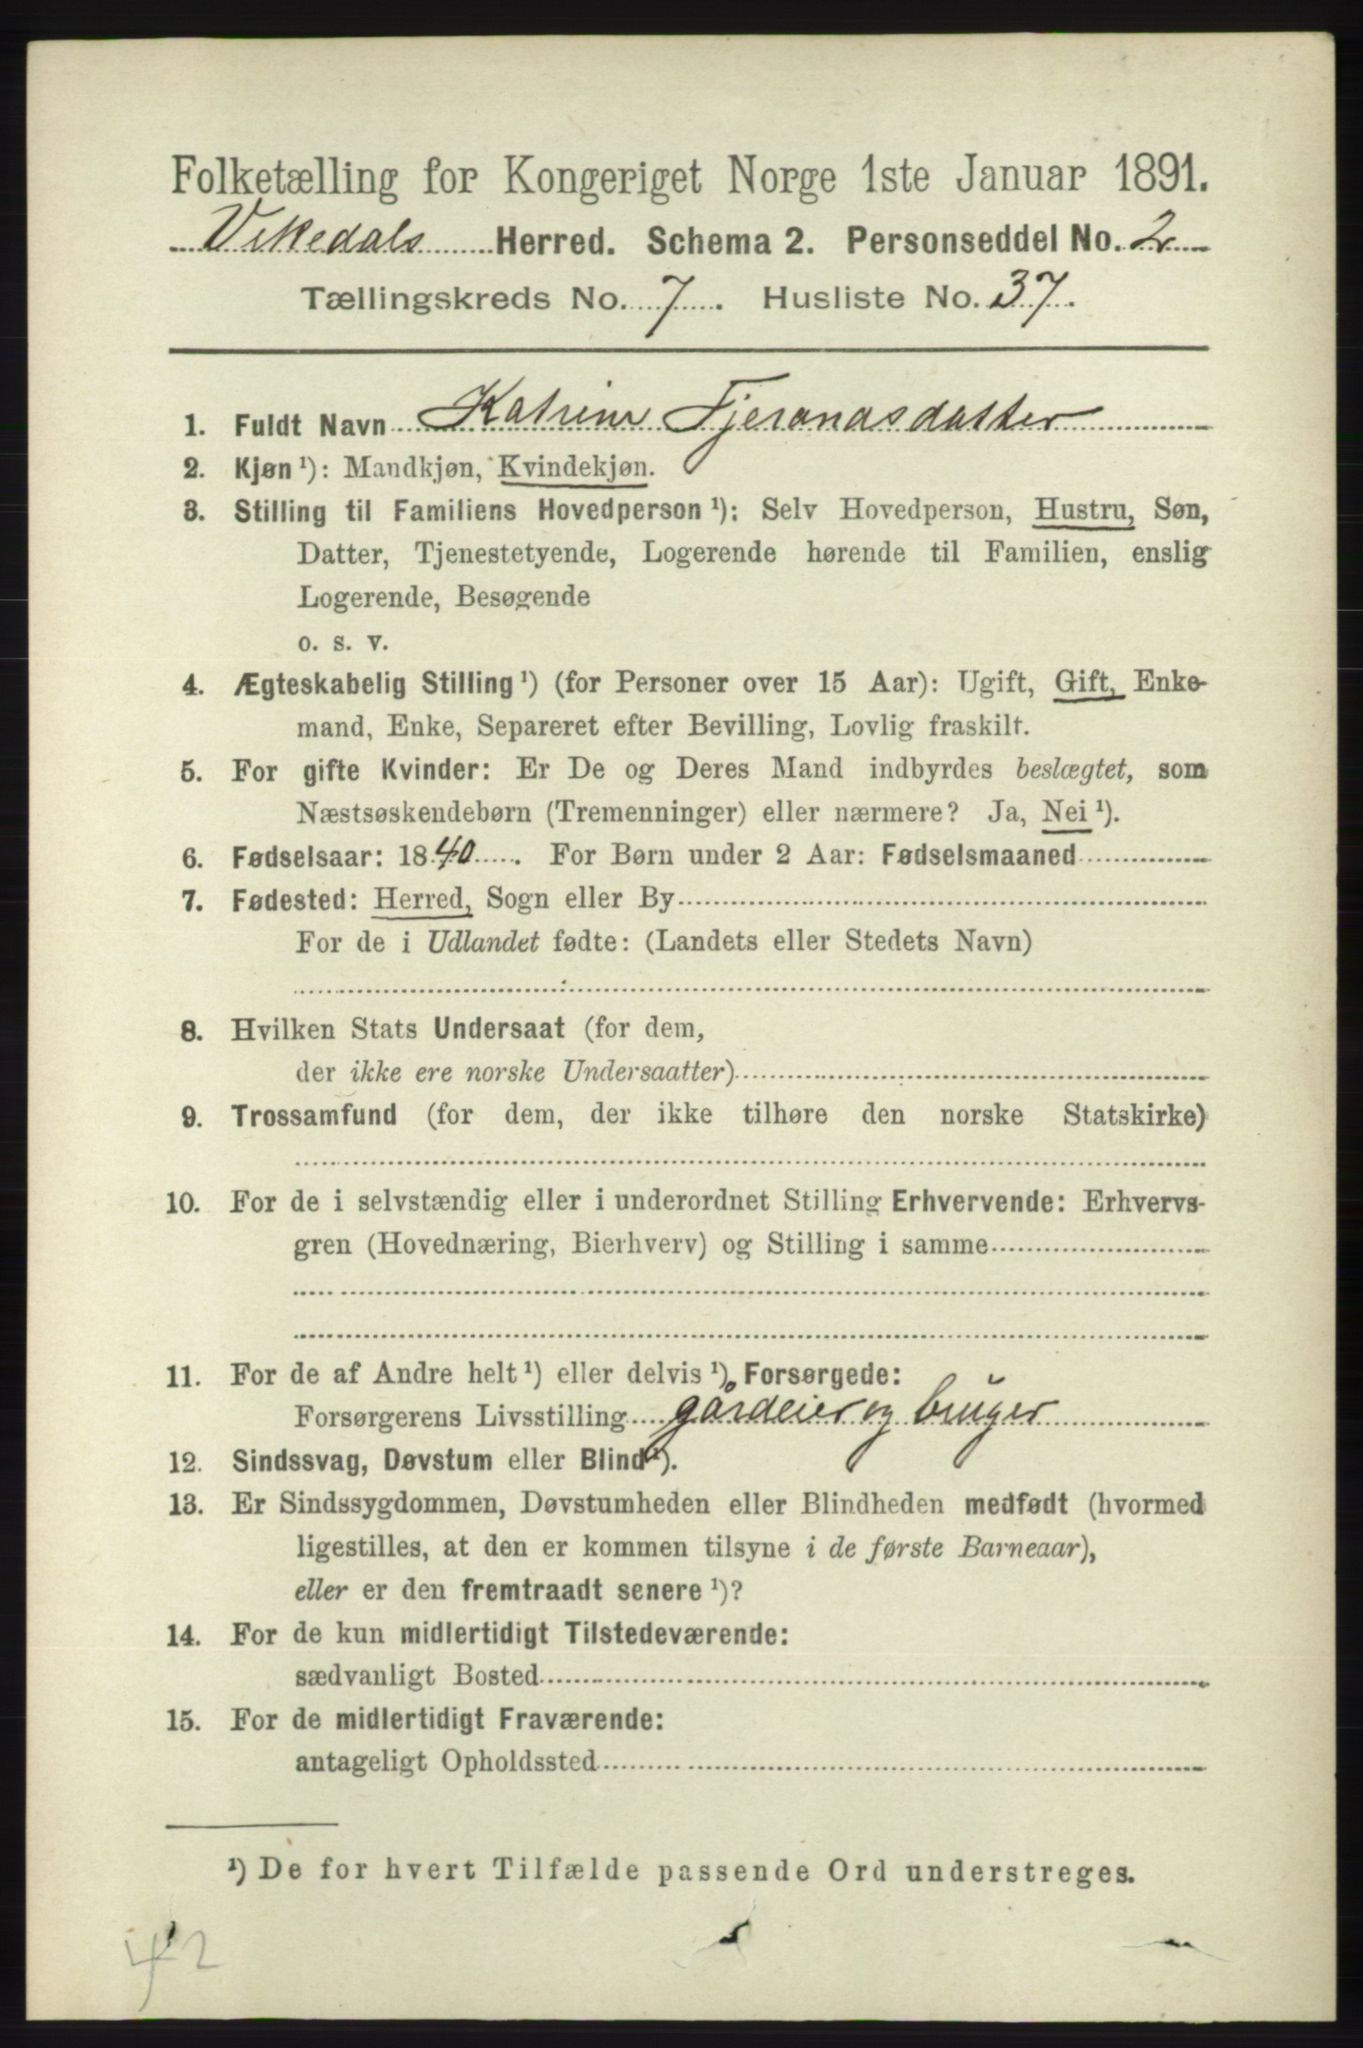 Folketælling for Kongeriget Norge 1ste Januar 1891.
Vikedals Herred. Schema 2. Personseddel No. 2
Tællingskreds No. 7. Husliste No. 37.
1. Fuldt Navn Katrine Tjerandsdatter
2. Kjøn ¹): Mandkjøn, Kvindekjøn.
3. Stilling til Familiens Hovedperson ¹): Selv Hovedperson, Hustru, Søn,
Datter, Tjenestetyende, Logerende hørende til Familien, enslig
Logerende, Besøgende
o. s. v.
4. Ægteskabelig Stilling ¹) (for Personer over 15 Aar): Ugift, Gift, Enke-
mand, Enke, Separeret efter Bevilling, Lovlig fraskilt.
5. For gifte Kvinder: Er De og Deres Mand indbyrdes beslægtet, som
Næstsøskendebørn (Tremenninger) eller nærmere? Ja, Nei ¹).
6. Fødselsaar: 1840. For Børn under 2 Aar: Fødselsmaaned
7. Fødested: Herred, Sogn eller By
For de i Udlandet fødte: (Landets eller Stedets Navn)
8. Hvilken Stats Undersaat (for dem,
der ikke ere norske Undersaatter)
9. Trossamfund (for dem, der ikke tilhøre den norske Statskirke)
10. For de i selvstændig eller i underordnet Stilling Erhvervende: Erhvervs-
gren (Hovednæring, Bierhverv) og Stilling i samme
11. For de af Andre helt ¹) eller delvis ¹) Forsørgede:
Forsørgerens Livsstilling gårdeier og bruger
12. Sindssvag, Døvstum eller Blind ¹).
13. Er Sindssygdommen, Døvstumheden eller Blindheden medfødt (hvormed
ligestilles, at den er kommen tilsyne i de første Barneaar),
eller er den fremtraadt senere ¹)?
14. For de kun midlertidigt Tilstedeværende:
sædvanligt Bosted
15. For de midlertidigt Fraværende:
antageligt Opholdssted
¹) De for hvert Tilfælde passende Ord understreges.
42